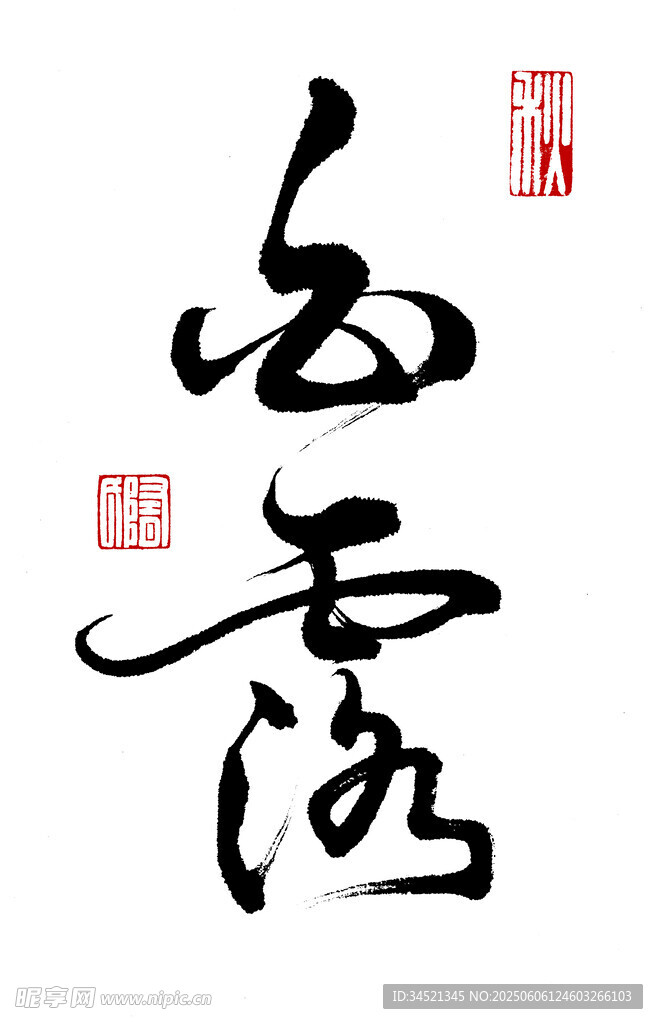 白露
秋
昵享网 www.nipic.cn
ID:34521345 NO:20250606124603266103